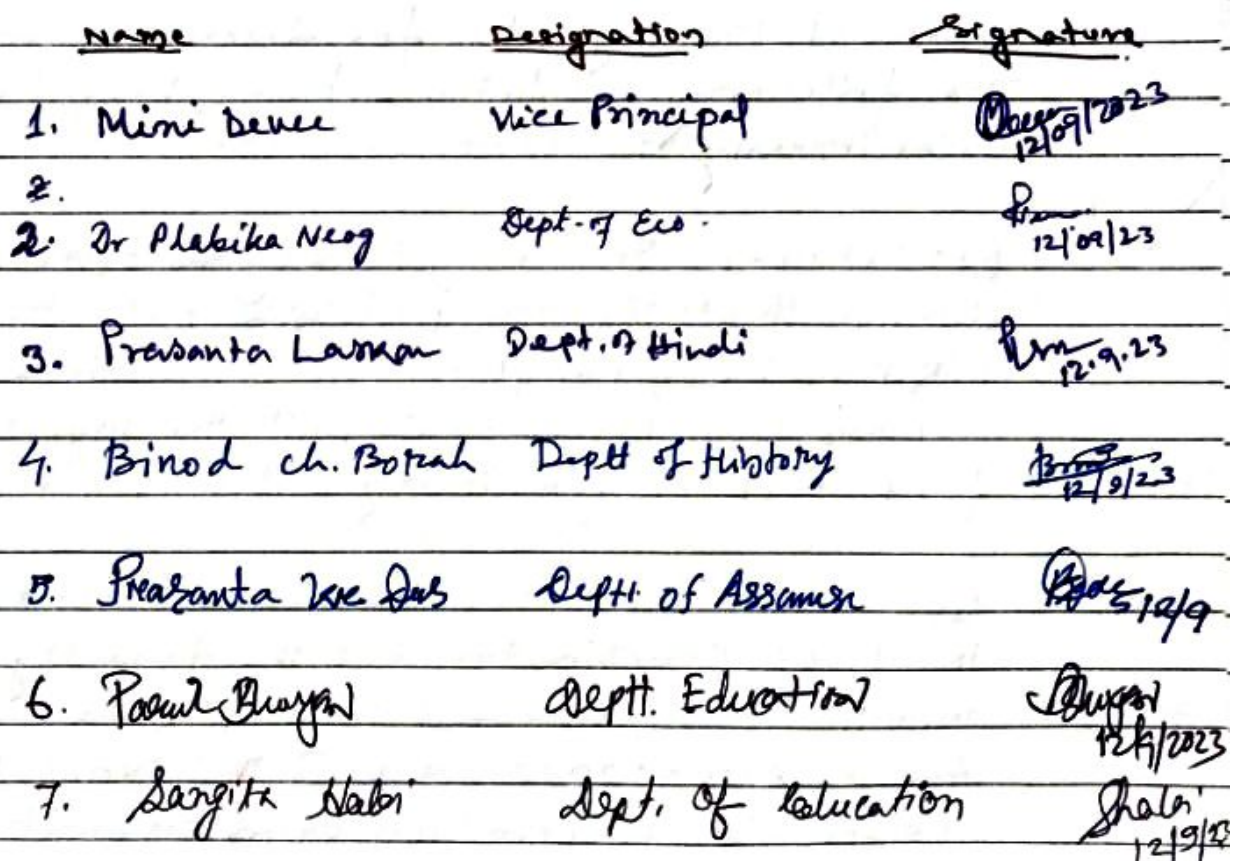 Name Designation Signature
1. Mini Devee Vice Principal 12/09/2023
2.
2. Dr Plabika Neog Dept. of Eco. 12/09/23
3. Prasanta Laskar Dept. of Hindi 12.9.23
4. Binod ch. Borah Deptt of History 12/9/23
5. Prasanta Das Deptt. of Assamese 12/9
6. Deptt. Education 12/9/2023
7. Sangita Dept. of Education 12/9/23